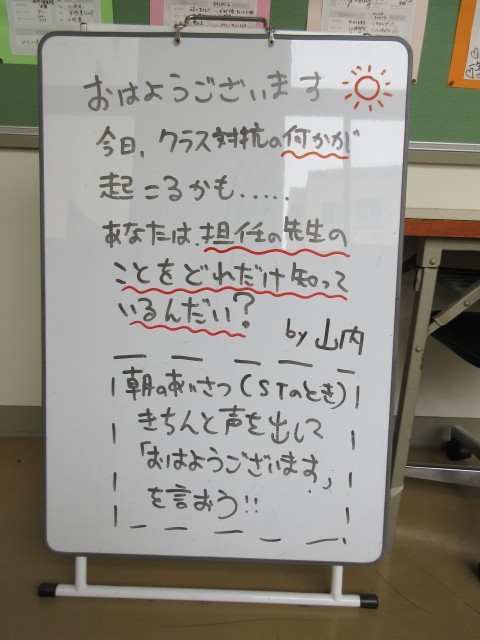 おはようございます
今日、クラス対抗の何かが
起こるかも.....
あなたは、担任の先生の
ことをどれだけ知って
いるんだい?
by 山内
朝のあいさつ(STのとき)
きちんと声を出して
「おはようございます」
を言おう!!